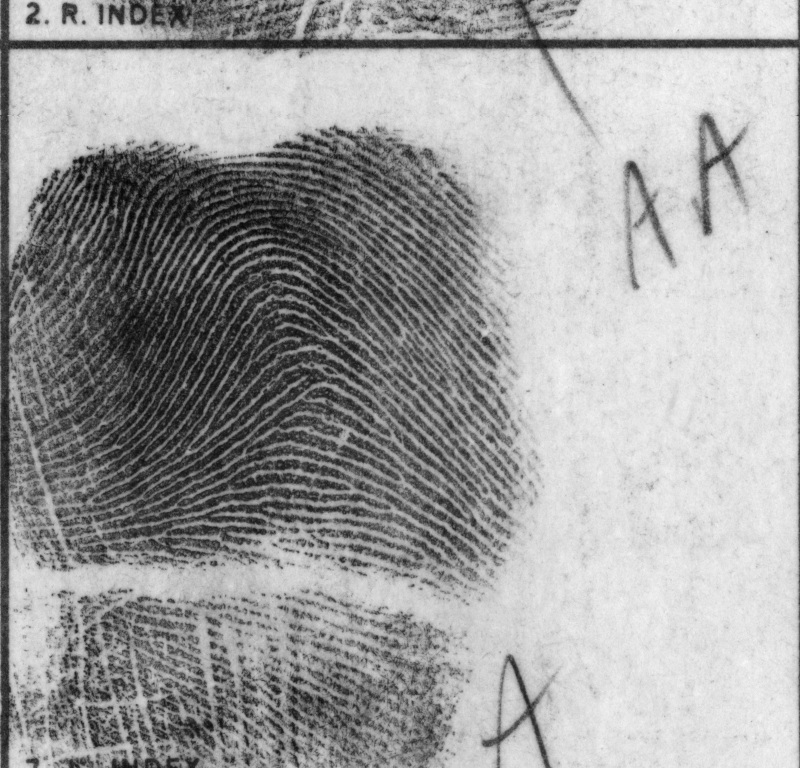 2. R. INDEX
A A
A
INDEX